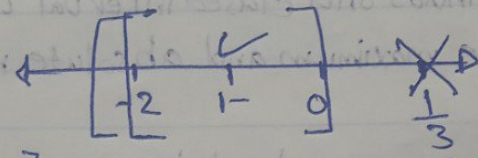 -2 1- 0 1/3